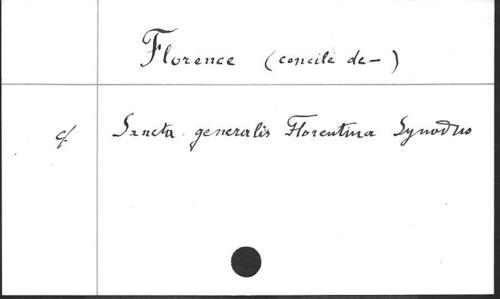 Florence (concile de-)
cf. Sancta generalis Florentina Synodus